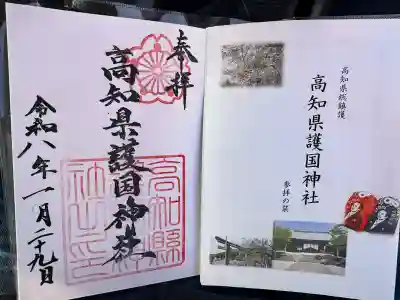 奉拝
高知県護国神社
令和八年一月二十九日
高知縣
神社印
高知県城鎮護
高知県護国神社
参拝の栞